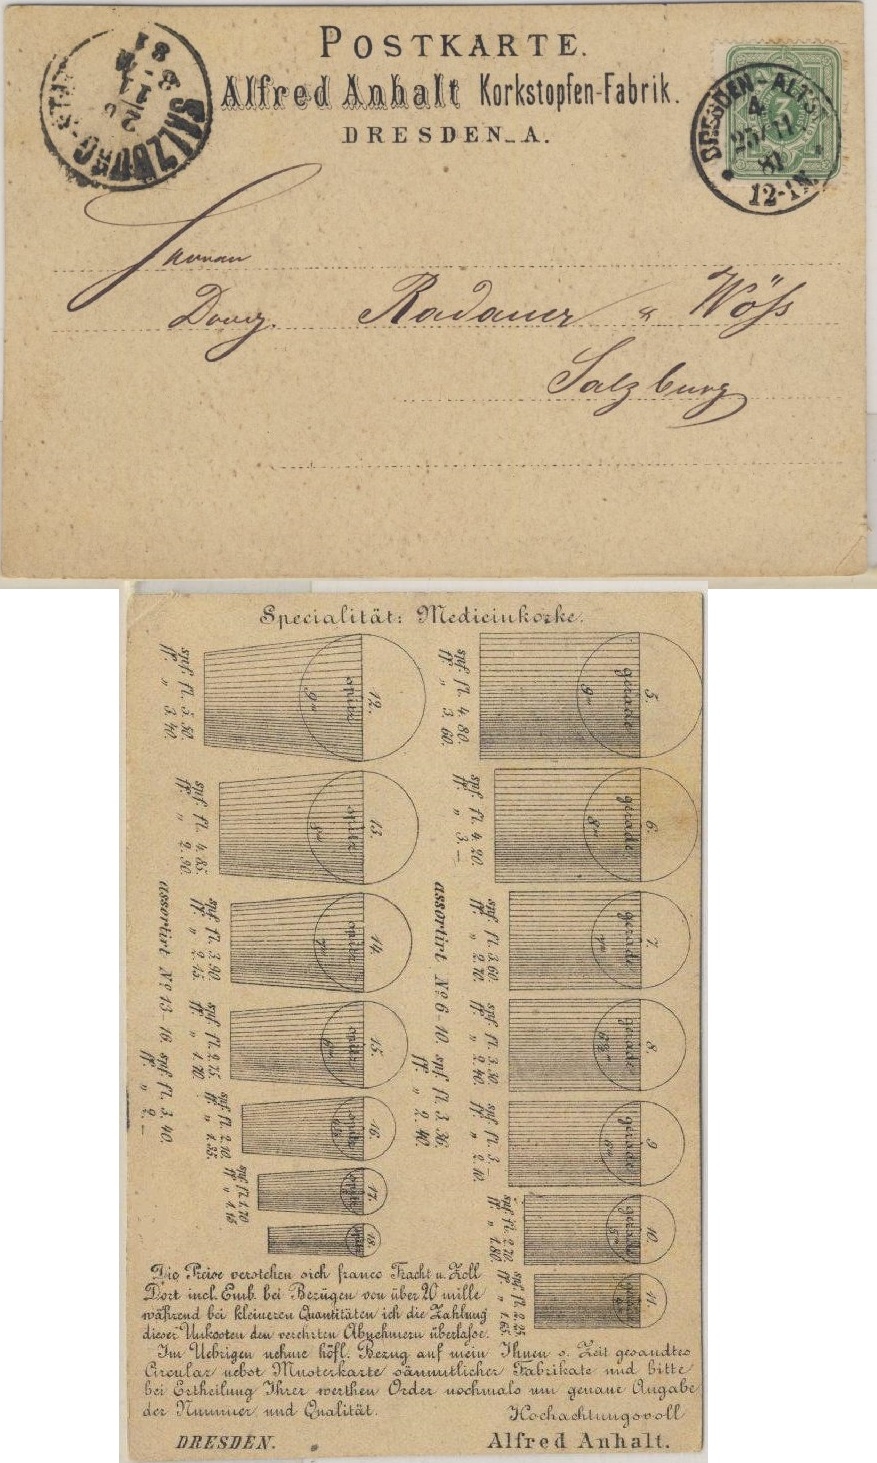 POSTKARTE.
Alfred Anhalt Korkstopfen-Fabrik.
DRESDEN_A.
SALZBURG-STADT
2/11
8-M
81
DRESDEN-ALTST.
4
25/11
81
12-1N.
3
Herren
Radauer & Wöss
Salzburg
Specialität: Medicinkorke.
5.
gerade
9'''
spf. fl. 4. 80.
ff. „ 3. 60.
6.
gerade
8'''
spf. fl. 4. 20.
ff. „ 3. —
7.
gerade
7'''
spf. fl. 3. 60.
ff. „ 2. 70.
8.
gerade
6½'''
spf. fl. 3. 30.
ff. „ 2. 40.
9.
gerade
6'''
spf. fl. 3. —
ff. „ 2. 10.
10.
gerade
5'''
spf. fl. 2. 70.
ff. „ 1. 80.
11.
spf. fl. 2. 25.
ff. „ 1. 65.
assortirt Nº 6-10. spf. fl. 3. 36.
ff. „ 2. 40.
12.
spitz
9'''
spf. fl. 5. 50.
ff. „ 3. 40.
13.
spitz
8'''
spf. fl. 4. 85.
ff. „ 2. 90.
14.
spitz
7'''
spf. fl. 3. 90.
ff. „ 2. 15.
15.
spitz
6'''
spf. fl. 2. 75.
ff. „ 1. 70.
16.
spitz
spf. fl. 2. 10.
ff. „ 1. 35.
17.
spitz
spf. fl. 1. 70.
ff. „ 1. 15.
18.
spitz
assortirt Nº 13-16. spf. fl. 3. 40.
ff. „ 2. —
Die Preise verstehen sich franco Fracht u. Zoll
Dort incl. Emb. bei Bezügen von über 20 mille
während bei kleineren Quantitäten ich die Zahlung
dieser Unkosten den verehrten Abnehmern überlasse.
Im Uebrigen nehme höfl. Bezug auf mein Ihnen s. Zeit gesandtes
Circular nebst Musterkarte sämmtlicher Fabrikate und bitte
bei Ertheilung Ihrer werthen Order nochmals um genaue Angabe
der Nummer und Qualität.
Hochachtungsvoll
DRESDEN. Alfred Anhalt.